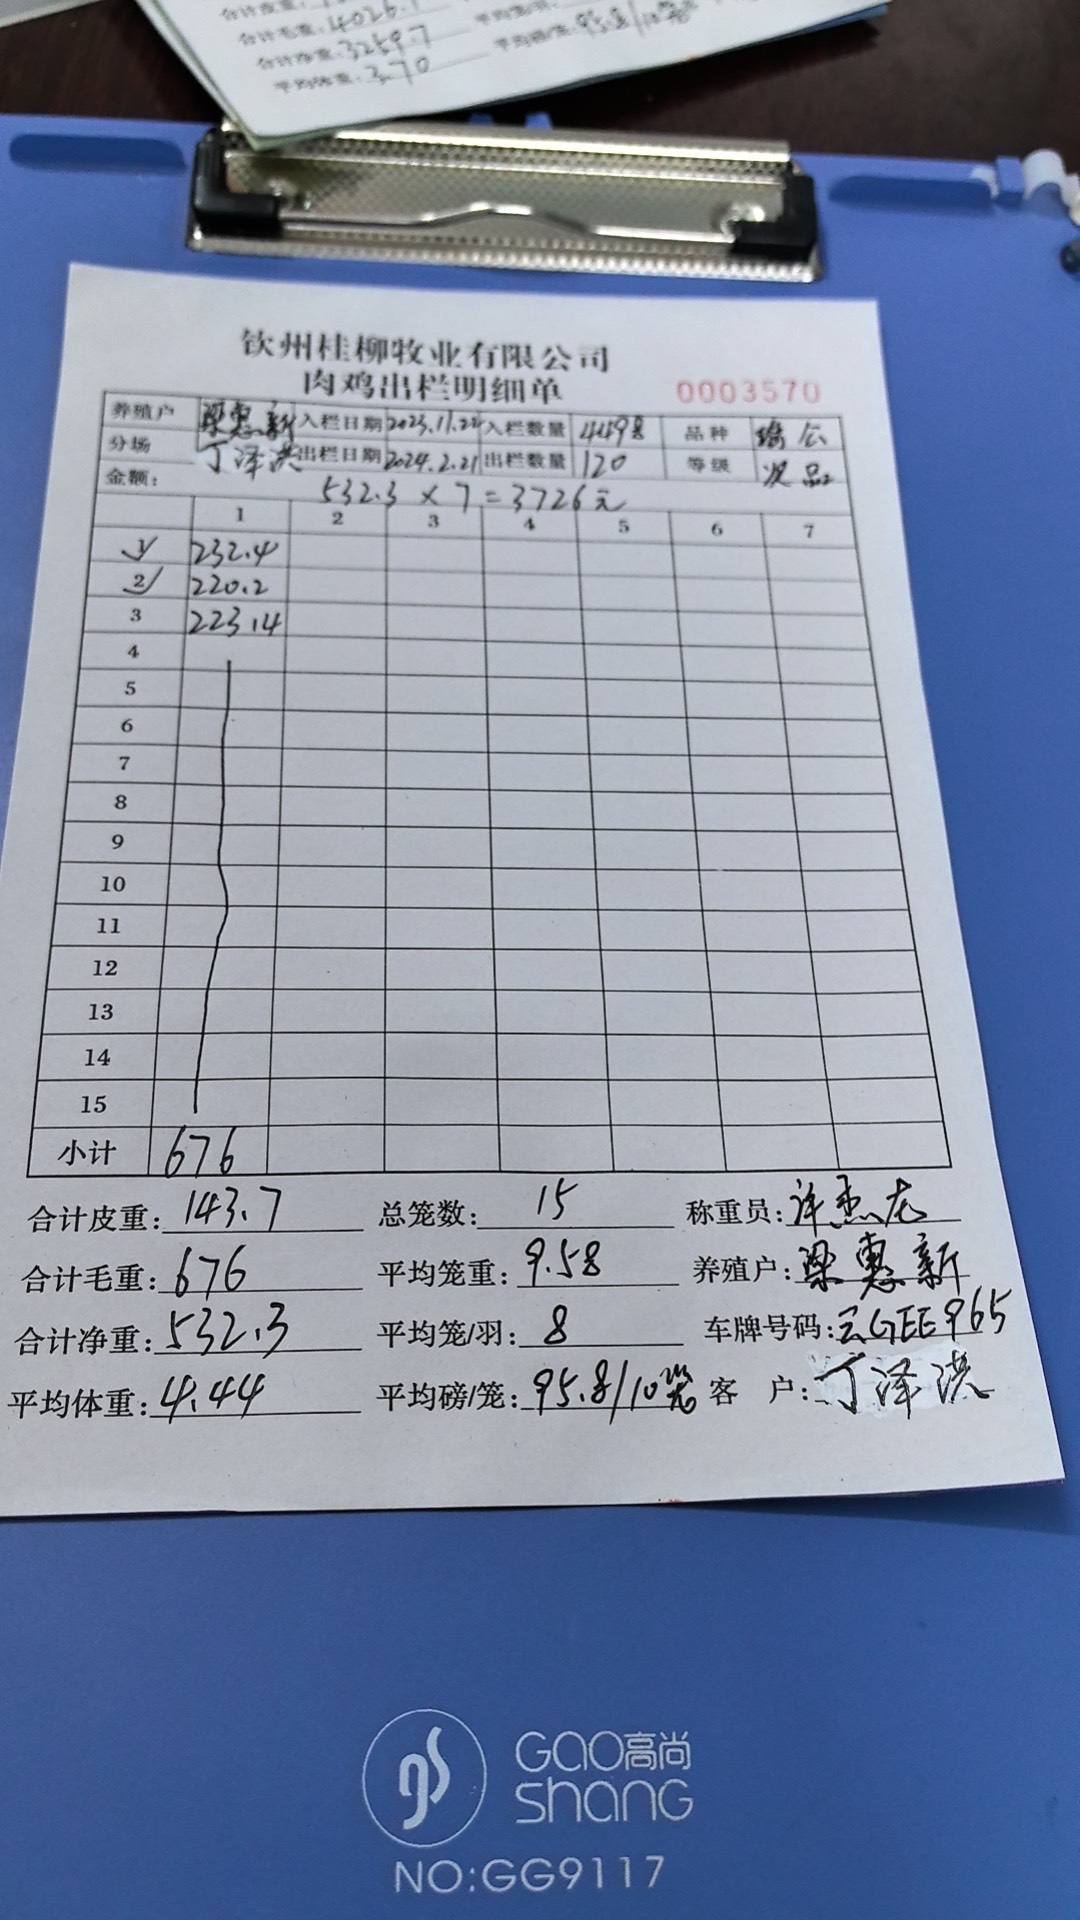 合计皮重:
合计毛重:4026.1
合计净重:3259.7 平均磅/笼:95.8/10笼
平均体重:3.70
钦州桂柳牧业有限公司
肉鸡出栏明细单 0003570
养殖户 梁惠新 入栏日期 2023.11.22 入栏数量 4498 品种
分场 丁泽洪 出栏日期 2024.2.21 出栏数量 120 等级 次品
金额: 532.3×7=3726元
1 2 3 4 5 6 7
1 232.4
2 220.2
3 223.4
4
5
6
7
8
9
10
11
12
13
14
15
小计 676
合计皮重:143.7 总笼数:15 称重员:许杰龙
合计毛重:676 平均笼重:9.58 养殖户:梁惠新
合计净重:532.3 平均笼/羽:8 车牌号码:云GEE965
平均体重:4.44 平均磅/笼:95.8/10笼 客户:丁泽洪
GAO高尚
SHANG
NO:GG9117